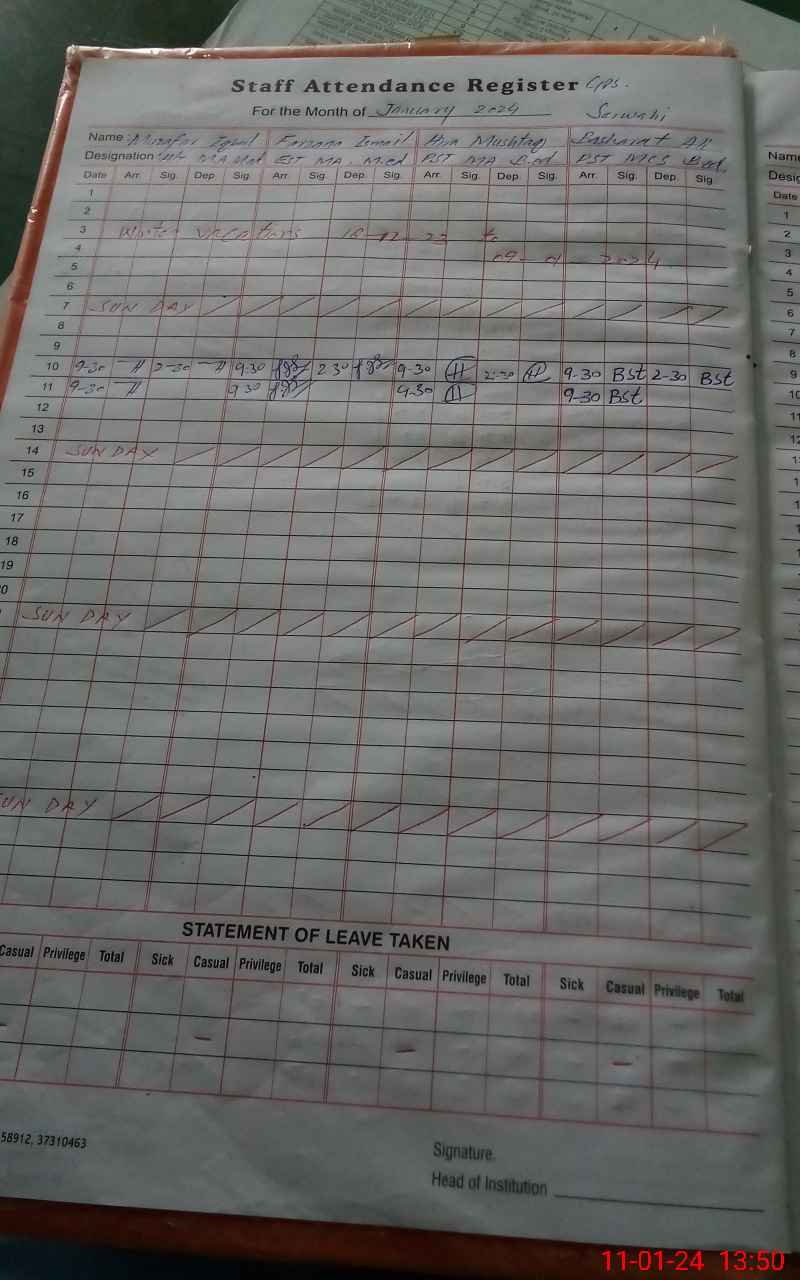 Staff Attendance Register GPS.
For the Month of January 2024 Serwahi
Name: Muzafar Iqbal Farzana Ismail Hira Mushtaq Basharat Ali
Designation: MA M.ed EST MA. M.ed PST MA B.ed PST MCS B.ed.
Date Arr. Sig. Dep. Sig. Arr. Sig. Dep. Sig. Arr. Sig. Dep. Sig. Arr. Sig. Dep. Sig.
1
2
3 Winter vacations 18-12-23 to
4 09-01-2024
5
6
7 SUNDAY
8
9
10 9-30 2-30 9.30 2.30 9-30 2-30 9-30 Bst 2-30 Bst
11 9-30 9.30 9-30 9-30 Bst
12
13
14 SUNDAY
15
16
17
18
19
SUNDAY
SUNDAY
STATEMENT OF LEAVE TAKEN
Casual Privilege Total Sick Casual Privilege Total Sick Casual Privilege Total Sick Casual Privilege Total
58912, 37310463
Signature.
Head of Institution
Name
Date
1
2
3
4
5
6
7
8
9
10
11
12
11-01-24 13:50